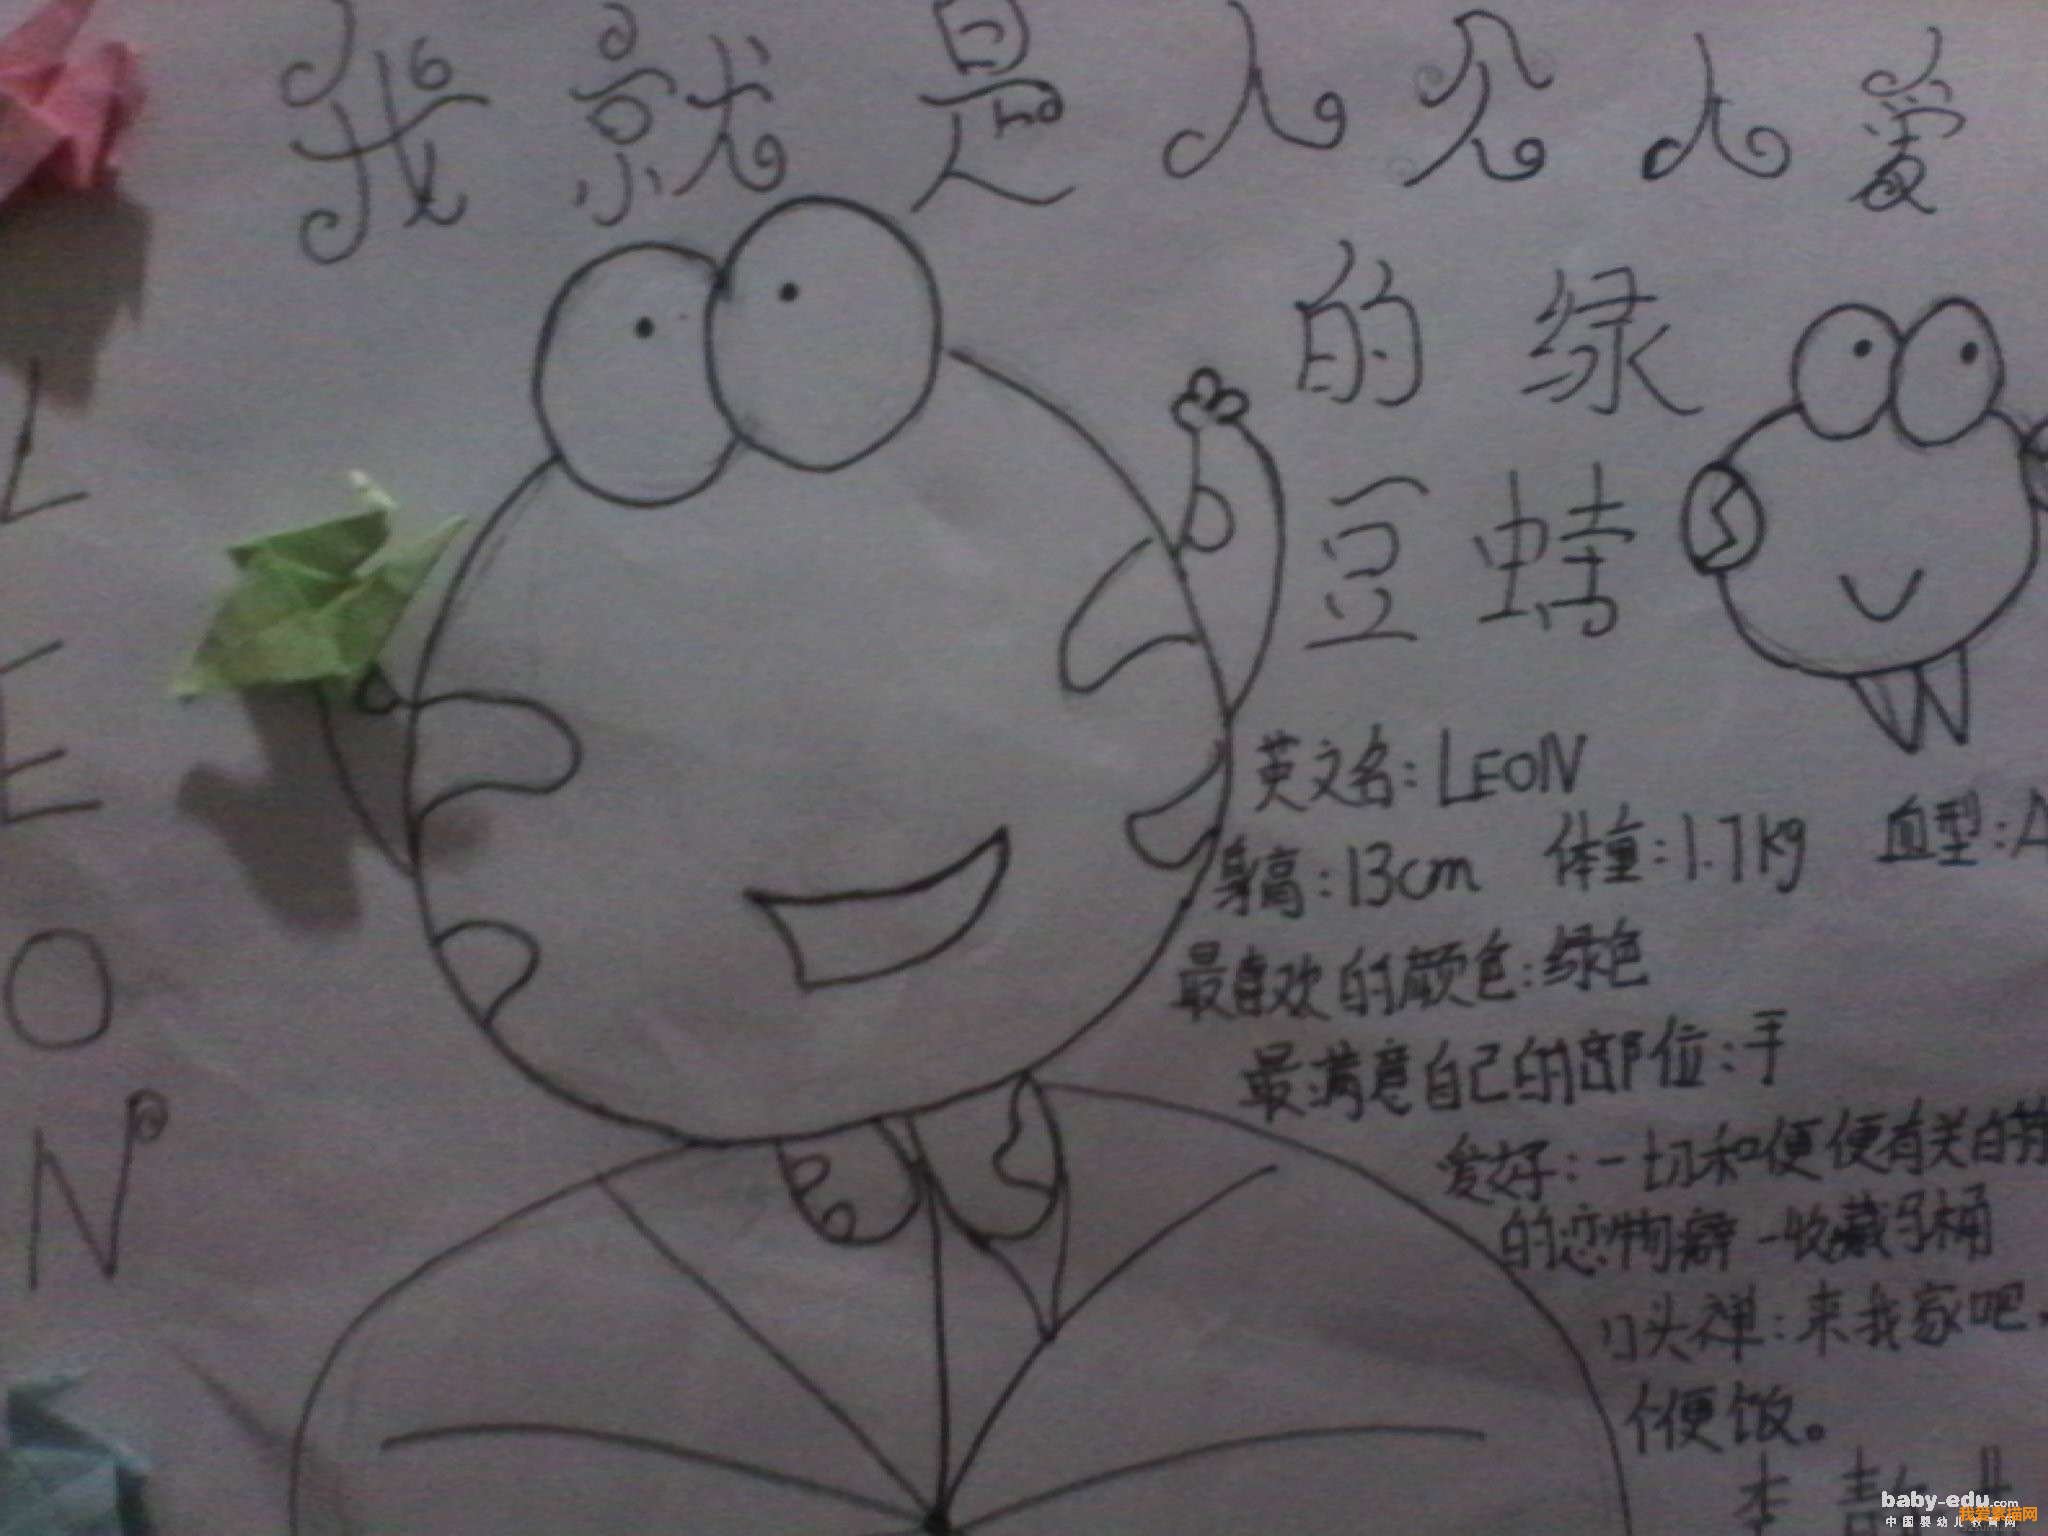 我就是人见人爱
的绿
豆蛙
LEON
英文名：LEON
身高：13cm 体重：1.7kg 血型：A
最喜欢的颜色：绿色
最满意自己的部位：手
爱好：一切和便便有关的
的恋物癖－收藏马桶
口头禅：来我家吧。
个便饭。
李
baby-edu.com
中国婴幼儿教育网
我爱素描网